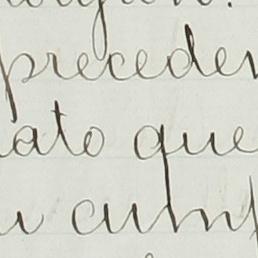 preceden
ato que
cump